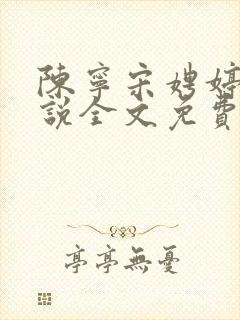 陳寧宋娉婷
說全文免費
亭亭無憂